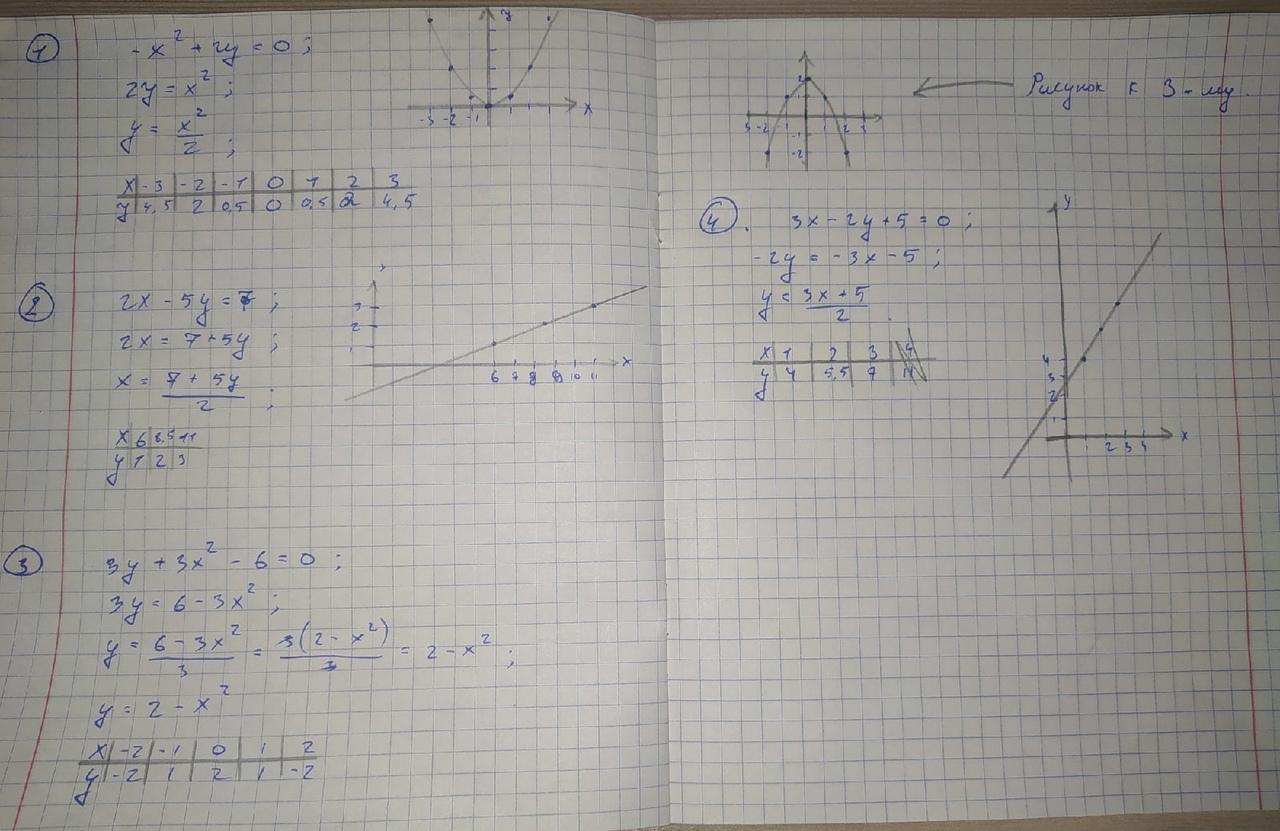 1
-x² + 2y = 0 ;
2y = x² ;
y = x²/2 ;
x -3 -2 -1 0 1 2 3
y 4,5 2 0,5 0 0,5 2 4,5
y
-3 -2 -1 x
2
2x - 5y = 7 ;
2x = 7 + 5y ;
x = 7 + 5y / 2 ;
x 6 8,5 11
y 1 2 3
3
2
1
6 7 8 9 10 11 x
3
3y + 3x² - 6 = 0 ;
3y = 6 - 3x² ;
y = 6 - 3x² / 3 = 3(2 - x²) / 3 = 2 - x² ;
y = 2 - x²
x -2 -1 0 1 2
y -2 1 2 1 -2
2
1
3 -2 -1 1 2 3
-1
-2
Рисунок к 3-му.
4.
3x - 2y + 5 = 0 ;
-2y = -3x - 5 ;
y = 3x + 5 / 2 .
x 1 2 3
y 4 5,5 7
y
4
3
2
1
1 2 3 4 x